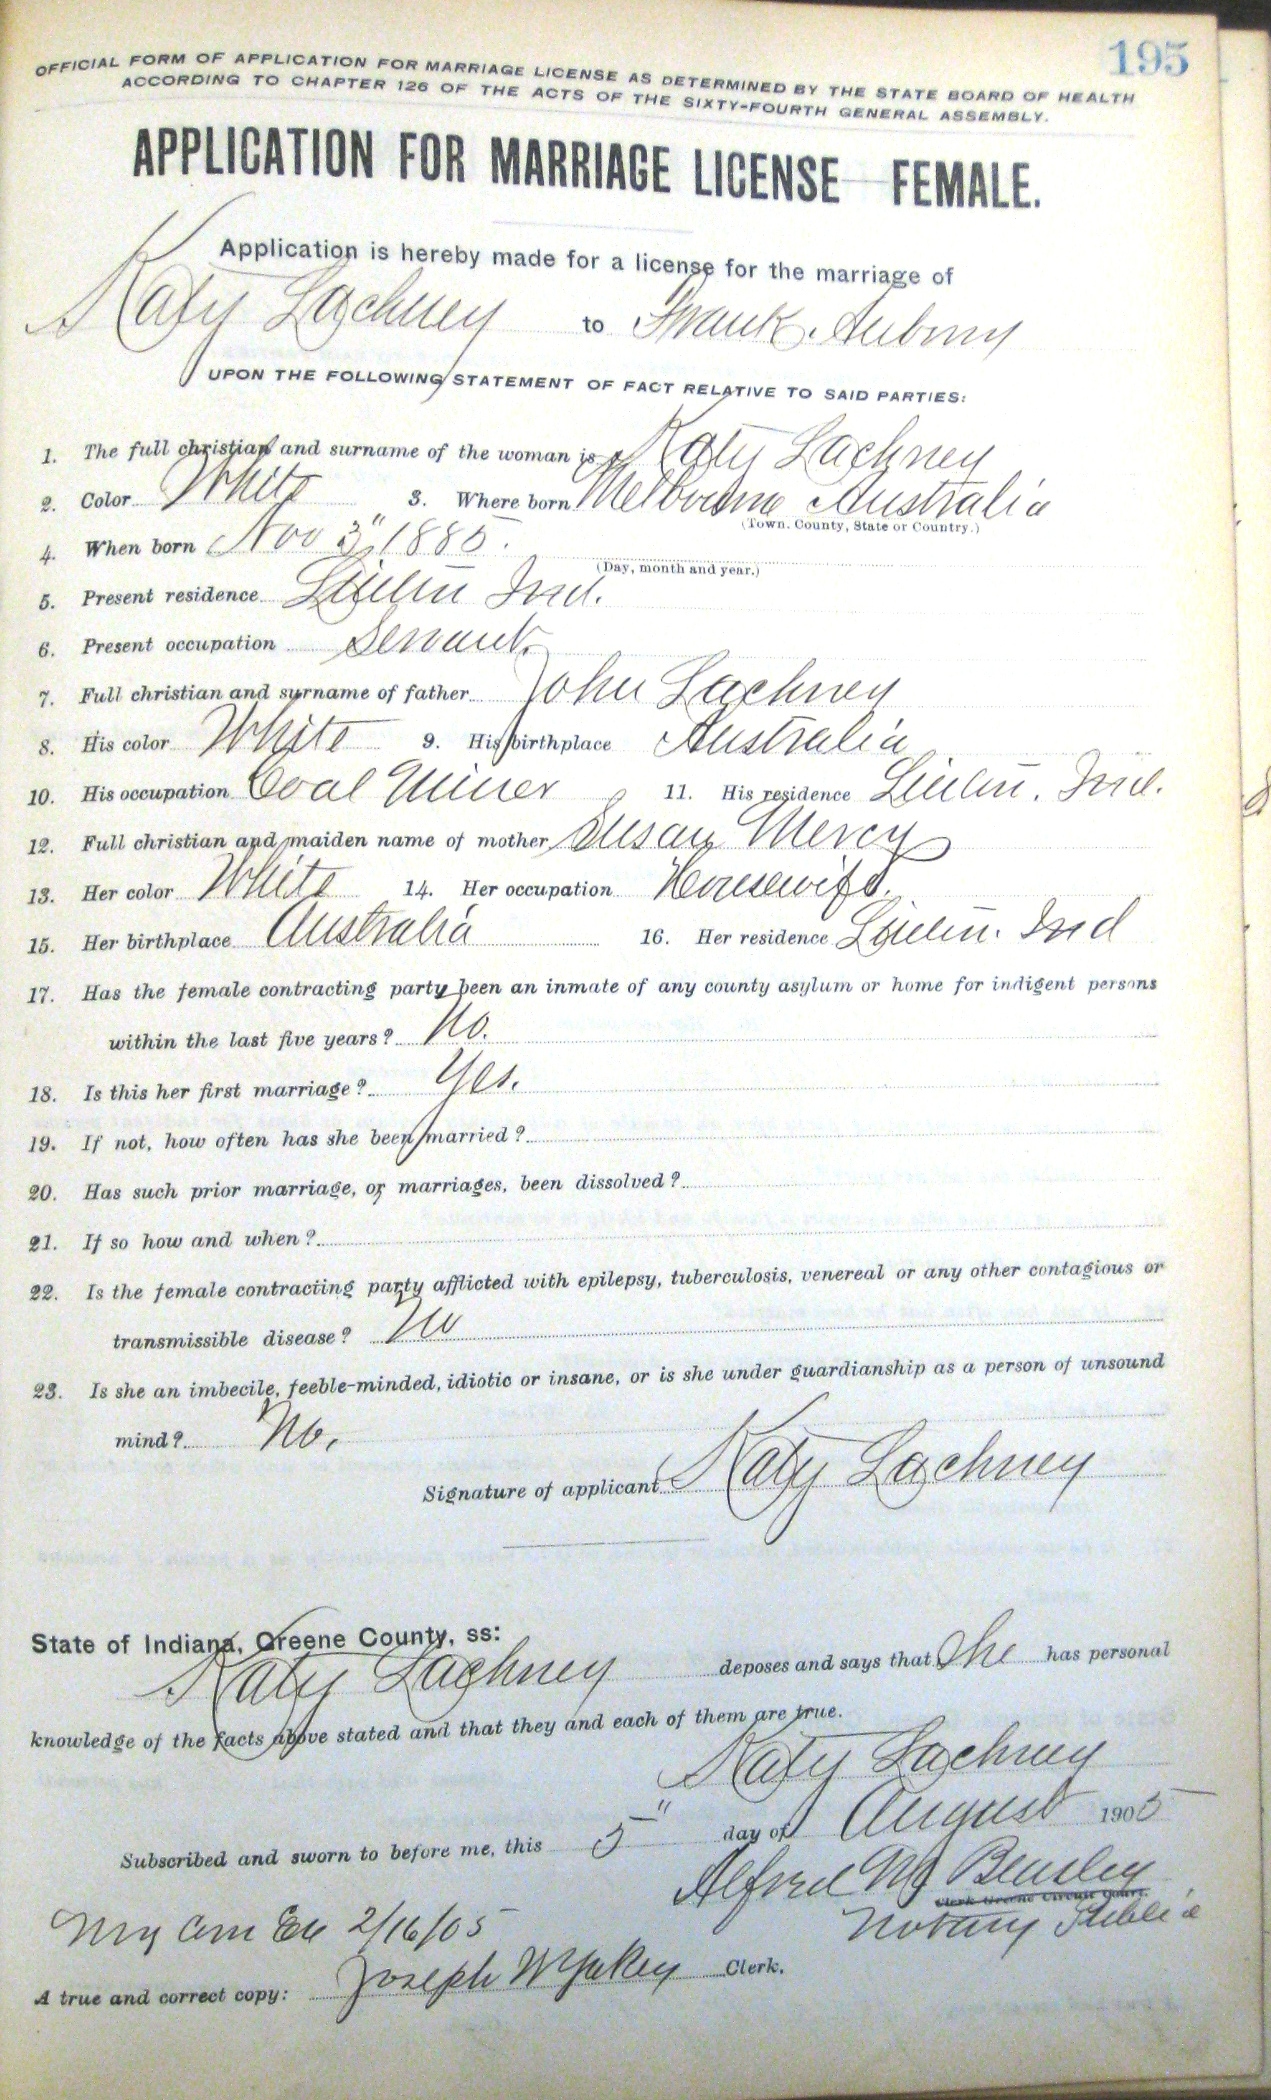 195
OFFICIAL FORM OF APPLICATION FOR MARRIAGE LICENSE AS DETERMINED BY THE STATE BOARD OF HEALTH
ACCORDING TO CHAPTER 126 OF THE ACTS OF THE SIXTY-FOURTH GENERAL ASSEMBLY.
APPLICATION FOR MARRIAGE LICENSE FEMALE.
Application is hereby made for a license for the marriage of
Katy Lachney to Frank Aubrny
UPON THE FOLLOWING STATEMENT OF FACT RELATIVE TO SAID PARTIES:
1. The full christian and surname of the woman is Katy Lachney
2. Color White 3. Where born Melbourne Australia
(Town. County, State or Country.)
4. When born Nov 3" 1885.
(Day, month and year.)
5. Present residence Linton Ind.
6. Present occupation Servant.
7. Full christian and surname of father John Lachney
8. His color White 9. His birthplace Australia
10. His occupation Coal Miner 11. His residence Linton. Ind.
12. Full christian and maiden name of mother Susan Mercy
13. Her color White 14. Her occupation Housewife.
15. Her birthplace Australia 16. Her residence Linton. Ind
17. Has the female contracting party been an inmate of any county asylum or home for indigent persons
within the last five years? No.
18. Is this her first marriage? Yes.
19. If not, how often has she been married?
20. Has such prior marriage, or marriages, been dissolved?
21. If so how and when?
22. Is the female contracting party afflicted with epilepsy, tuberculosis, venereal or any other contagious or
transmissible disease? No
23. Is she an imbecile, feeble-minded, idiotic or insane, or is she under guardianship as a person of unsound
mind? No.
Signature of applicant Katy Lachney
State of Indiana, Greene County, ss:
Katy Lachney deposes and says that She has personal
knowledge of the facts above stated and that they and each of them are true.
Katy Lachney
Subscribed and sworn to before me, this 5" day of August 1905
Alfred M Beasley
Clerk Greene Circuit Court.
Notary Public
My Com Ex 2/16/05
A true and correct copy: Joseph W Yakey Clerk.